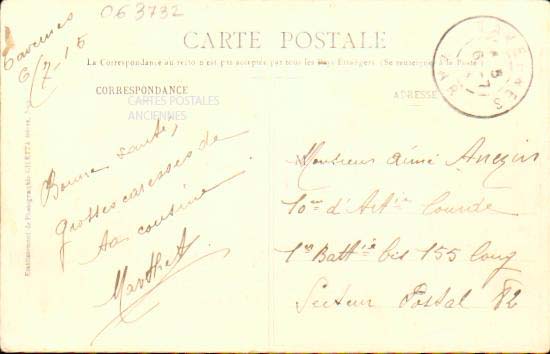 063732
Tavernes
6/7-15
CARTE POSTALE
La Correspondance au recto n'est pas acceptée par tous les Pays Étrangers. (Se renseigner à la Poste)
CORRESPONDANCE
CARTES POSTALES
ANCIENNES
ADRESSE
TAVERNES
VAR
Bonne santé,
Grosses caresses de
ta cousine
Marthe
Monsieur Aimé
10me d'Artie Lourde
1re Battie bis 155 long
Secteur Postal 82
Etablissement de Photographie GILETTA